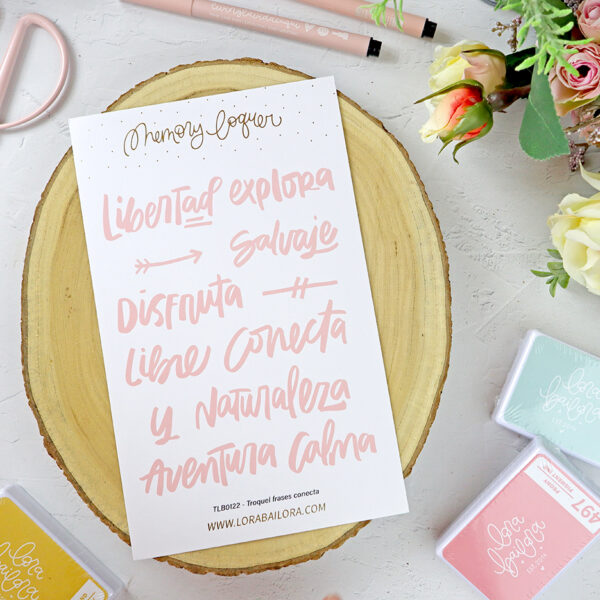 memory loquer
Libertad explora
Salvaje
Disfruta
Libre Conecta
y Naturaleza
Aventura Calma
TLB0122 - Troquel frases conecta
WWW.LORABAILORA.COM
lora
bailora
lora
bailora
PEONY
PIGMENT INK
497
lora
bailora